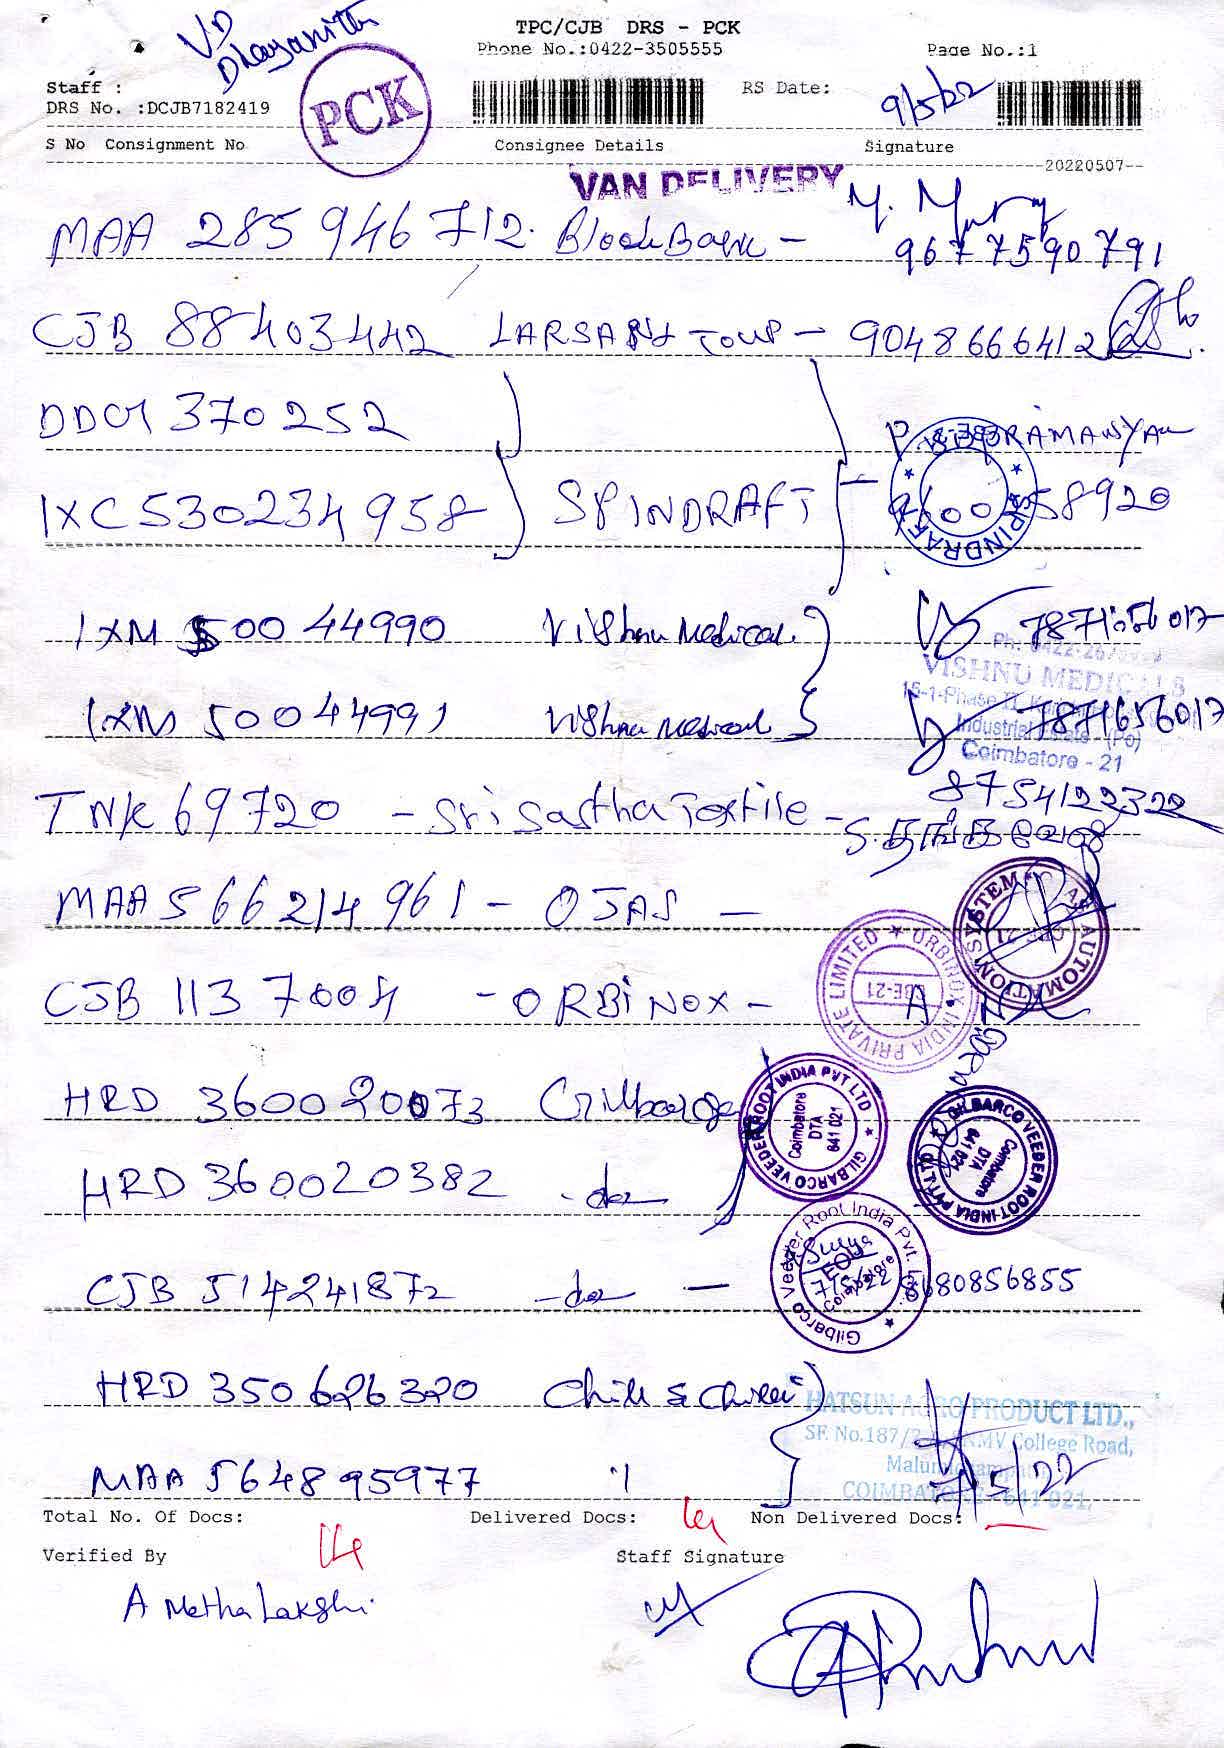 TPC/CJB DRS - PCK
Phone No.:0422-3505555
Page No.:1
V.D
Staff :
DRS No. :DCJB7182419
PCK
RS Date:
9/5/22
S No Consignment No
Consignee Details
Signature
20220507
VAN DELIVERY
MAA 285946712. Blood Bank -
9677590791
CJB 88403442 LARSAN TOUR - 9048666412
370252
IXC 530234958 SPINDRAFT
SPINDRAFT
IXM 50044990 Vishnu Medical
7871656017
Ph: 0422-267
VISHNU MEDICALS
Industrial Estate - (Po)
Coimbatore - 21
IXM 50044991 Vishnu Medical
7871656017
8754122322
TNK 69720 - Sri Sastha Textile - S. தங்கவேல்
MAA 566214961 - OJAS -
SYSTEM AUTOMATION
CJB 1137004 - ORBINOX -
ORBINOX INDIA PRIVATE LIMITED
CBE-21
HRD 360020073 Gilbarco
GILBARCO VEEDER ROOT INDIA PVT LTD
Coimbatore
DTA
641 021
GILBARCO VEEDER ROOT INDIA PVT LTD
Coimbatore
DTA
641 021
HRD 360020382 - do
CJB 514241872 - do - 8680856855
Gilbarco Veeder Root India Pvt. Ltd.
Surya
7/5/22
Coimbatore
HRD 350626320 Chill &
HATSUN AGRO PRODUCT LTD.,
SF. No.187/ KMV College Road,
COIMBATORE - 641 021.
MAA 564895977 "
7/5/22
Total No. Of Docs: 14
Delivered Docs: 14
Non Delivered Docs: —
Verified By
Staff Signature
A Metha Lakshi